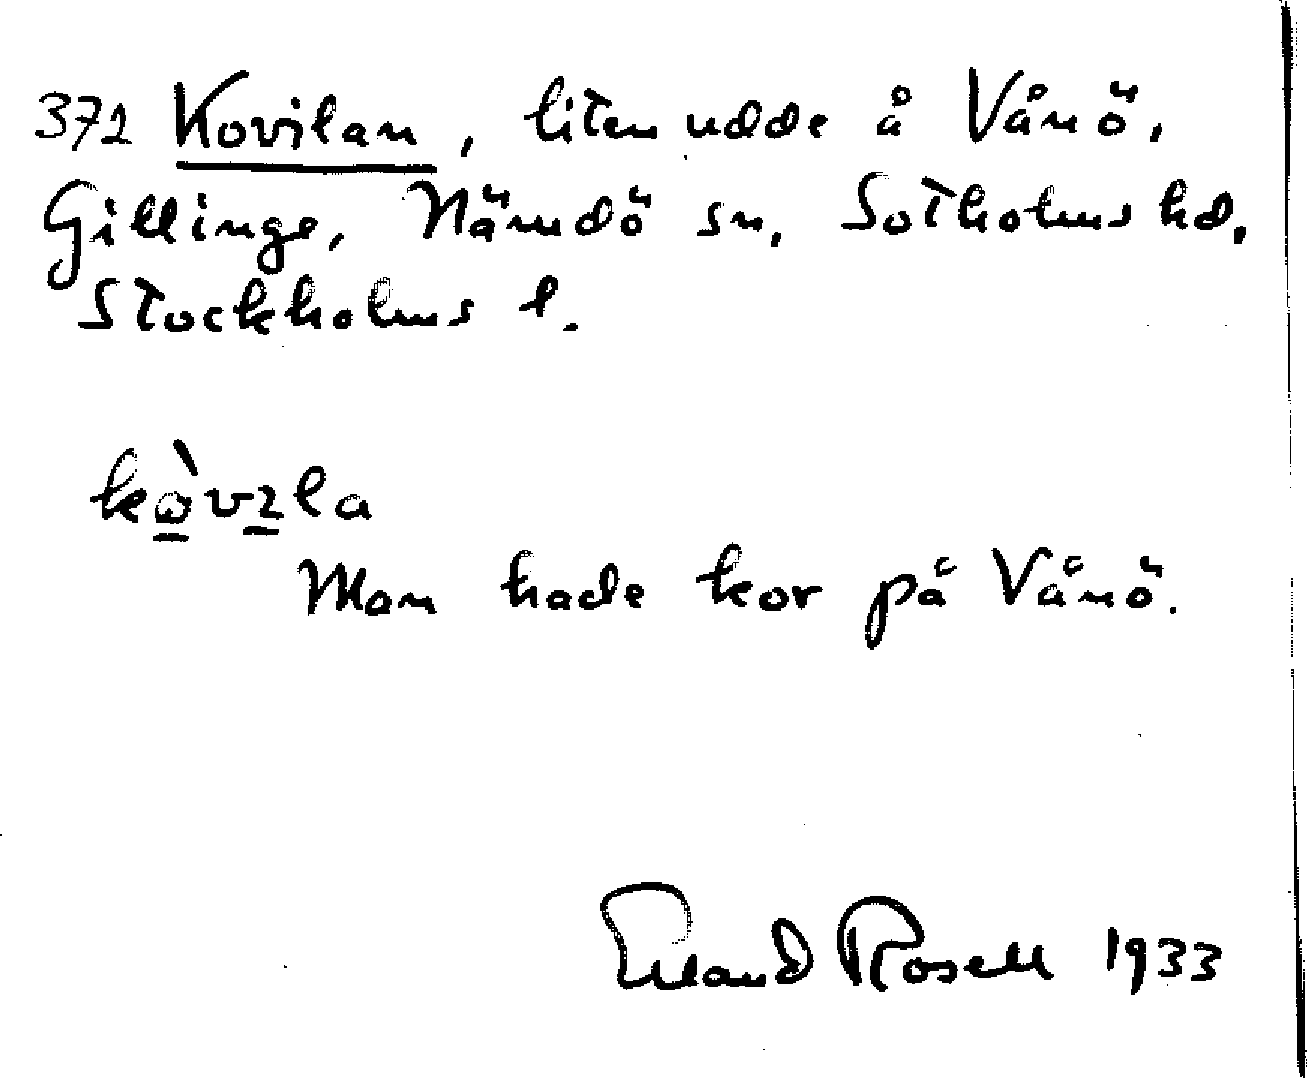 372 Kovilan, liten udde å Vånö,
Gillinge, Nämdö sn, Sotholms hd,
Stockholms l.
Man hade kor på Vånö.
Erland Rosell 1933